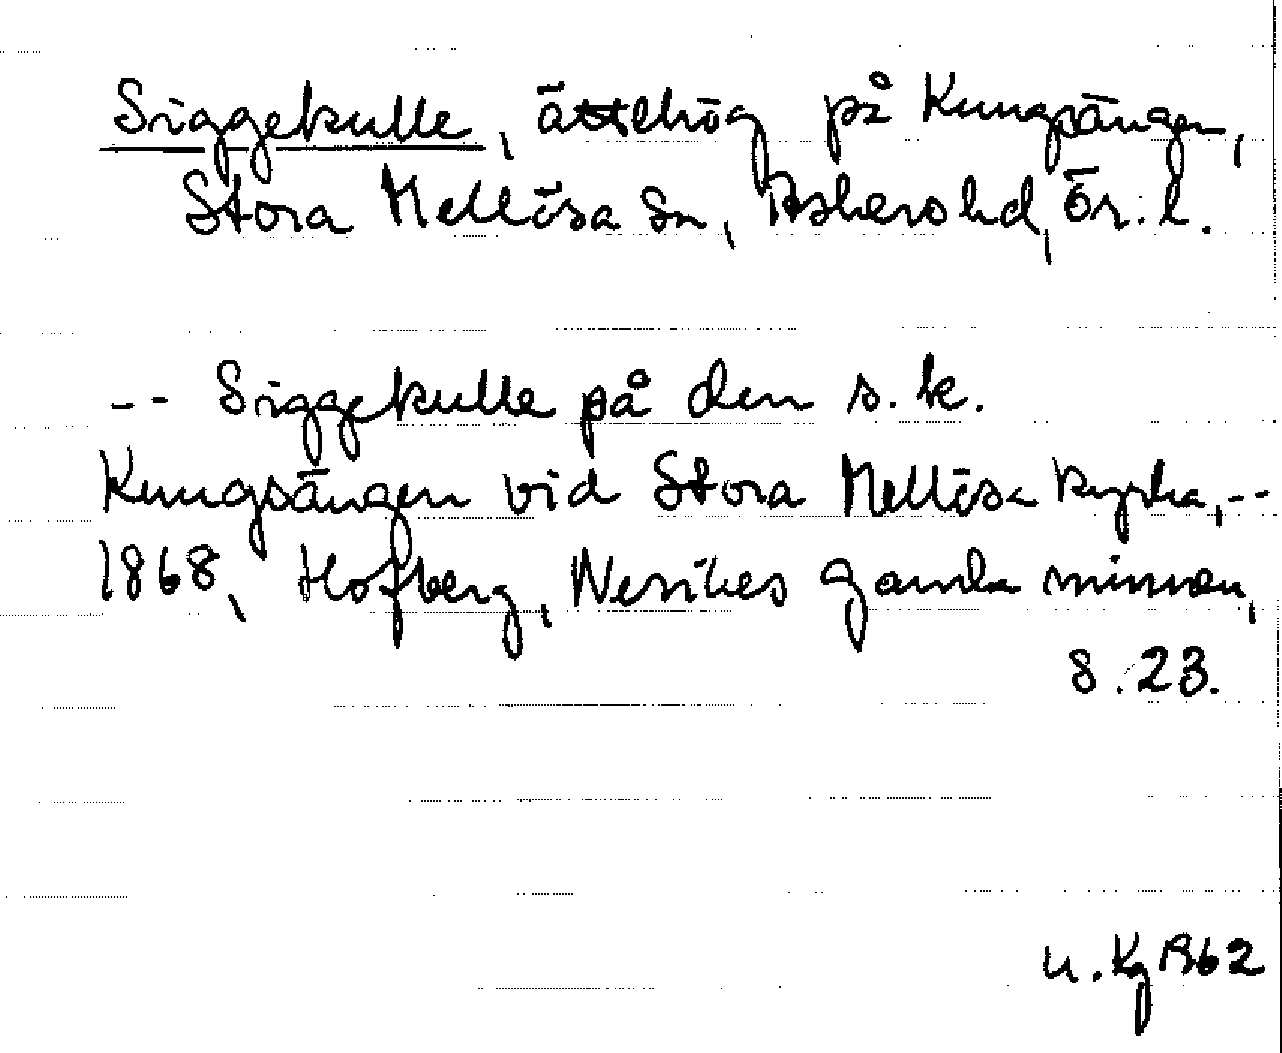 Siggekulle, ättehög på Kungsängen,
Stora Mellösa sn, Askers hd, Ör. l.
-- Siggekulle på den s.k.
Kungsängen vid Stora Mellösa kyrka, --
1868, Hofberg, Nerikes gamla minnen,
s. 23.